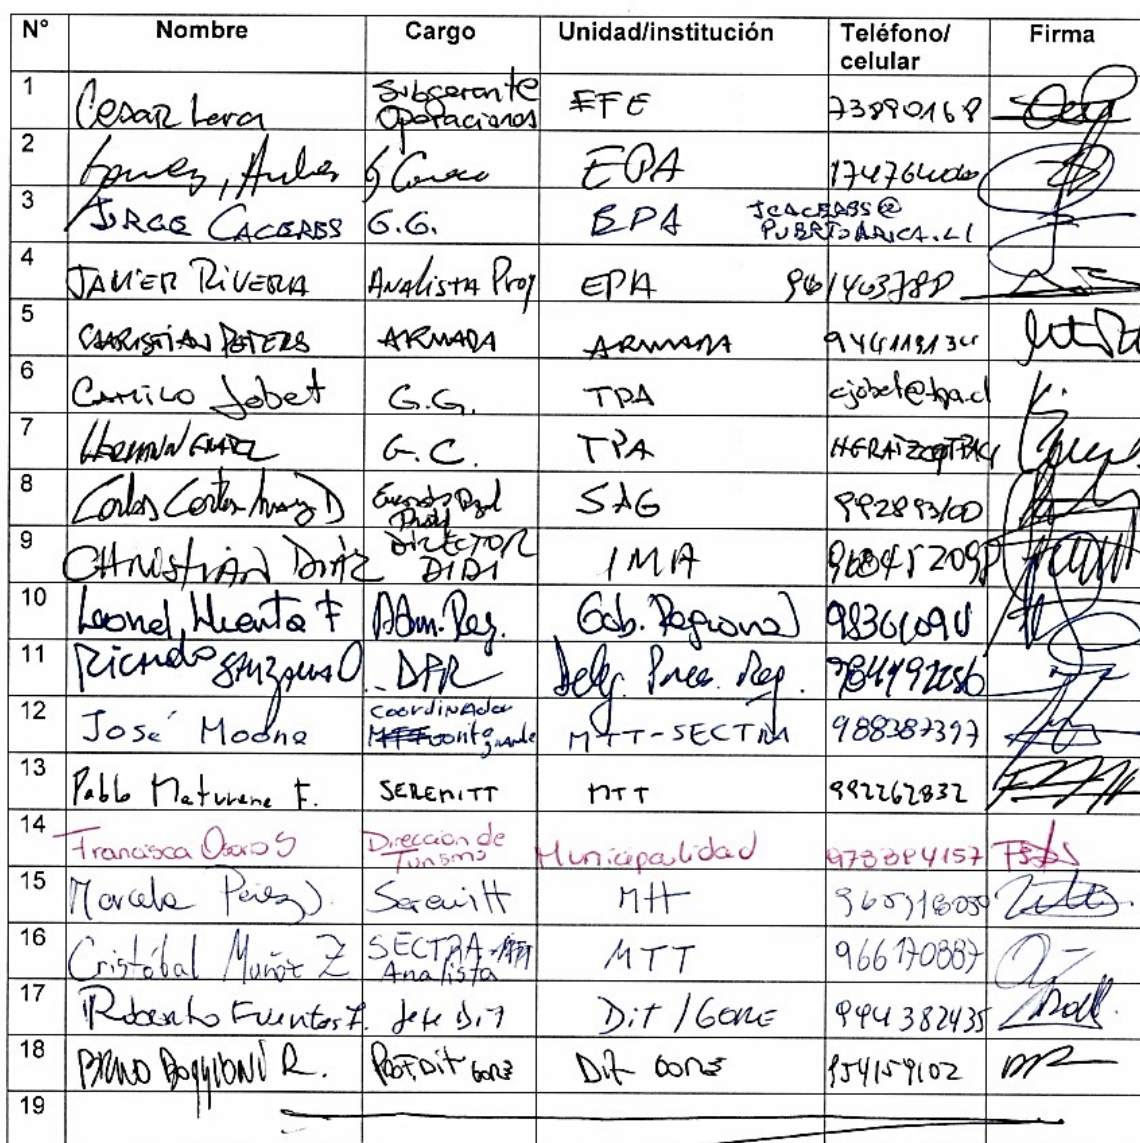 N° Nombre Cargo Unidad/institución Teléfono/ celular Firma
1 Cesar Lera Subgerente Operaciones EFE 73890168
2 EPA
3 JORGE CACERES G.G. EPA JCACERES@ PUERTOARICA.CL
4 JAVIER RIVERA Analista Proy EPA
5 CHRISTIAN PETERS ARMADA ARMADA
6 Camilo Jobet G.G. TPA cjobet@tpa.cl
7 G.C. TPA
8 Carlos Cortes SAG
9 CHRISTIAN DIAZ DIRECTOR DIDI IMA
10 Leonel Huerta F Adm. Reg. Gob. Regional
11 Ricardo DPR Deleg. Pres. Reg.
12 José Modne Coordinador MTT-SECTRA 988387397
13 Pablo Maturana F. SEREMITT MTT 992262832
14 Francisca Osorio S Dirección de Turismo Municipalidad
15 Marcela Pérez Seremitt MTT
16 Cristóbal Muñoz Z SECTRA-MTT Analista MTT 966170887
17 Roberto Fuentes F. Jefe Dit Dit/GORE 994382435
18 BRUNO BOGGIONI R. Prof. Dit GORE Dit GORE 954159102
19